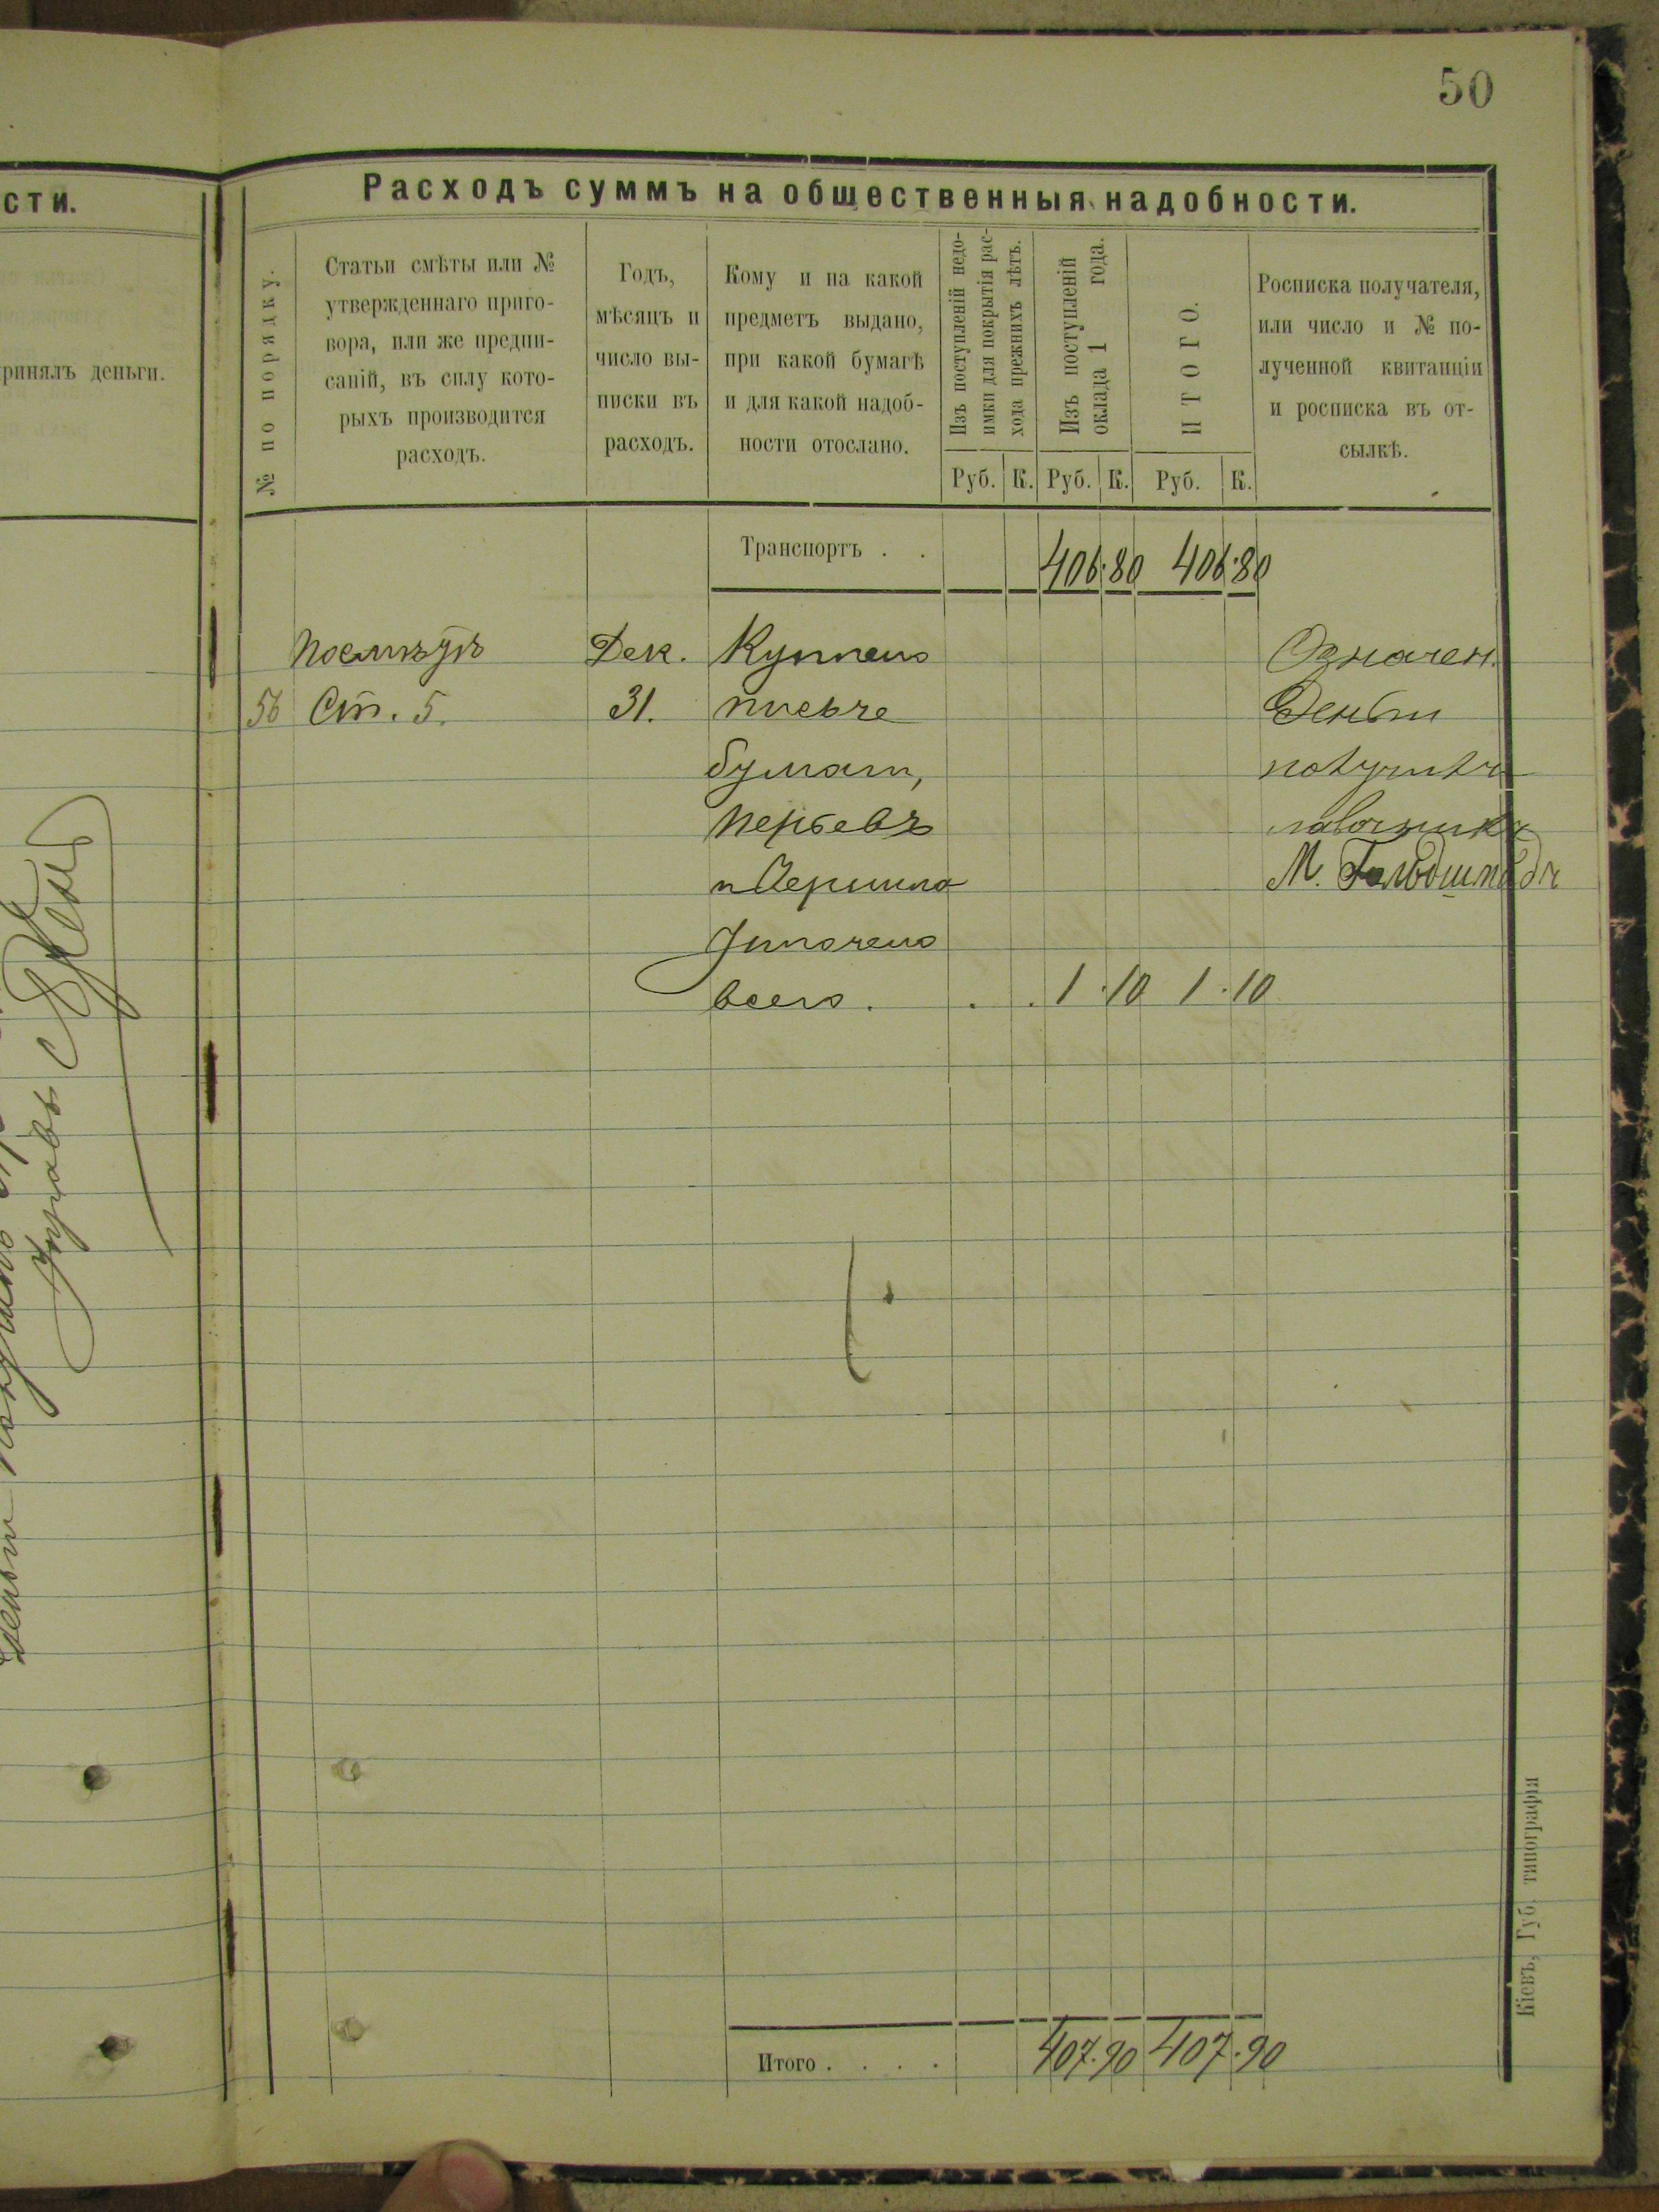 50
сти.
Расходъ суммъ на общественныя надобности.
№ по порядку.
Статьи смѣты или №
утвержденнаго приго-
вора, или же предпи-
саній, въ силу кото-
рыхъ производится
расходъ.
Годъ,
мѣсяцъ и
число вы-
писки въ
расходъ.
Кому и на какой
предметъ выдано,
при какой бумагѣ
и для какой надоб-
ности отослано.
Изъ поступленій недо-
имки для покрытія рас-
хода прежнихъ лѣтъ.
Изъ поступленій
оклада 1 года.
ИТОГО.
Росписка получателя,
или число и № по-
лученной квитанціи
и росписка въ от-
сылкѣ.
Руб. К. Руб. К. Руб. К.
ринялъ деньги.
Транспортъ . . 406.80 406.80
Дек. Куплено Означен.
56 Ст. 5. 31. писчей Деньги
бумаги, получилъ
перьевъ лавочникъ
и Чернила М.
Уплочено
всего . . . 1.10 1.10
Итого . . . . 407.90 407.90
Кіевъ, Губ. типографія